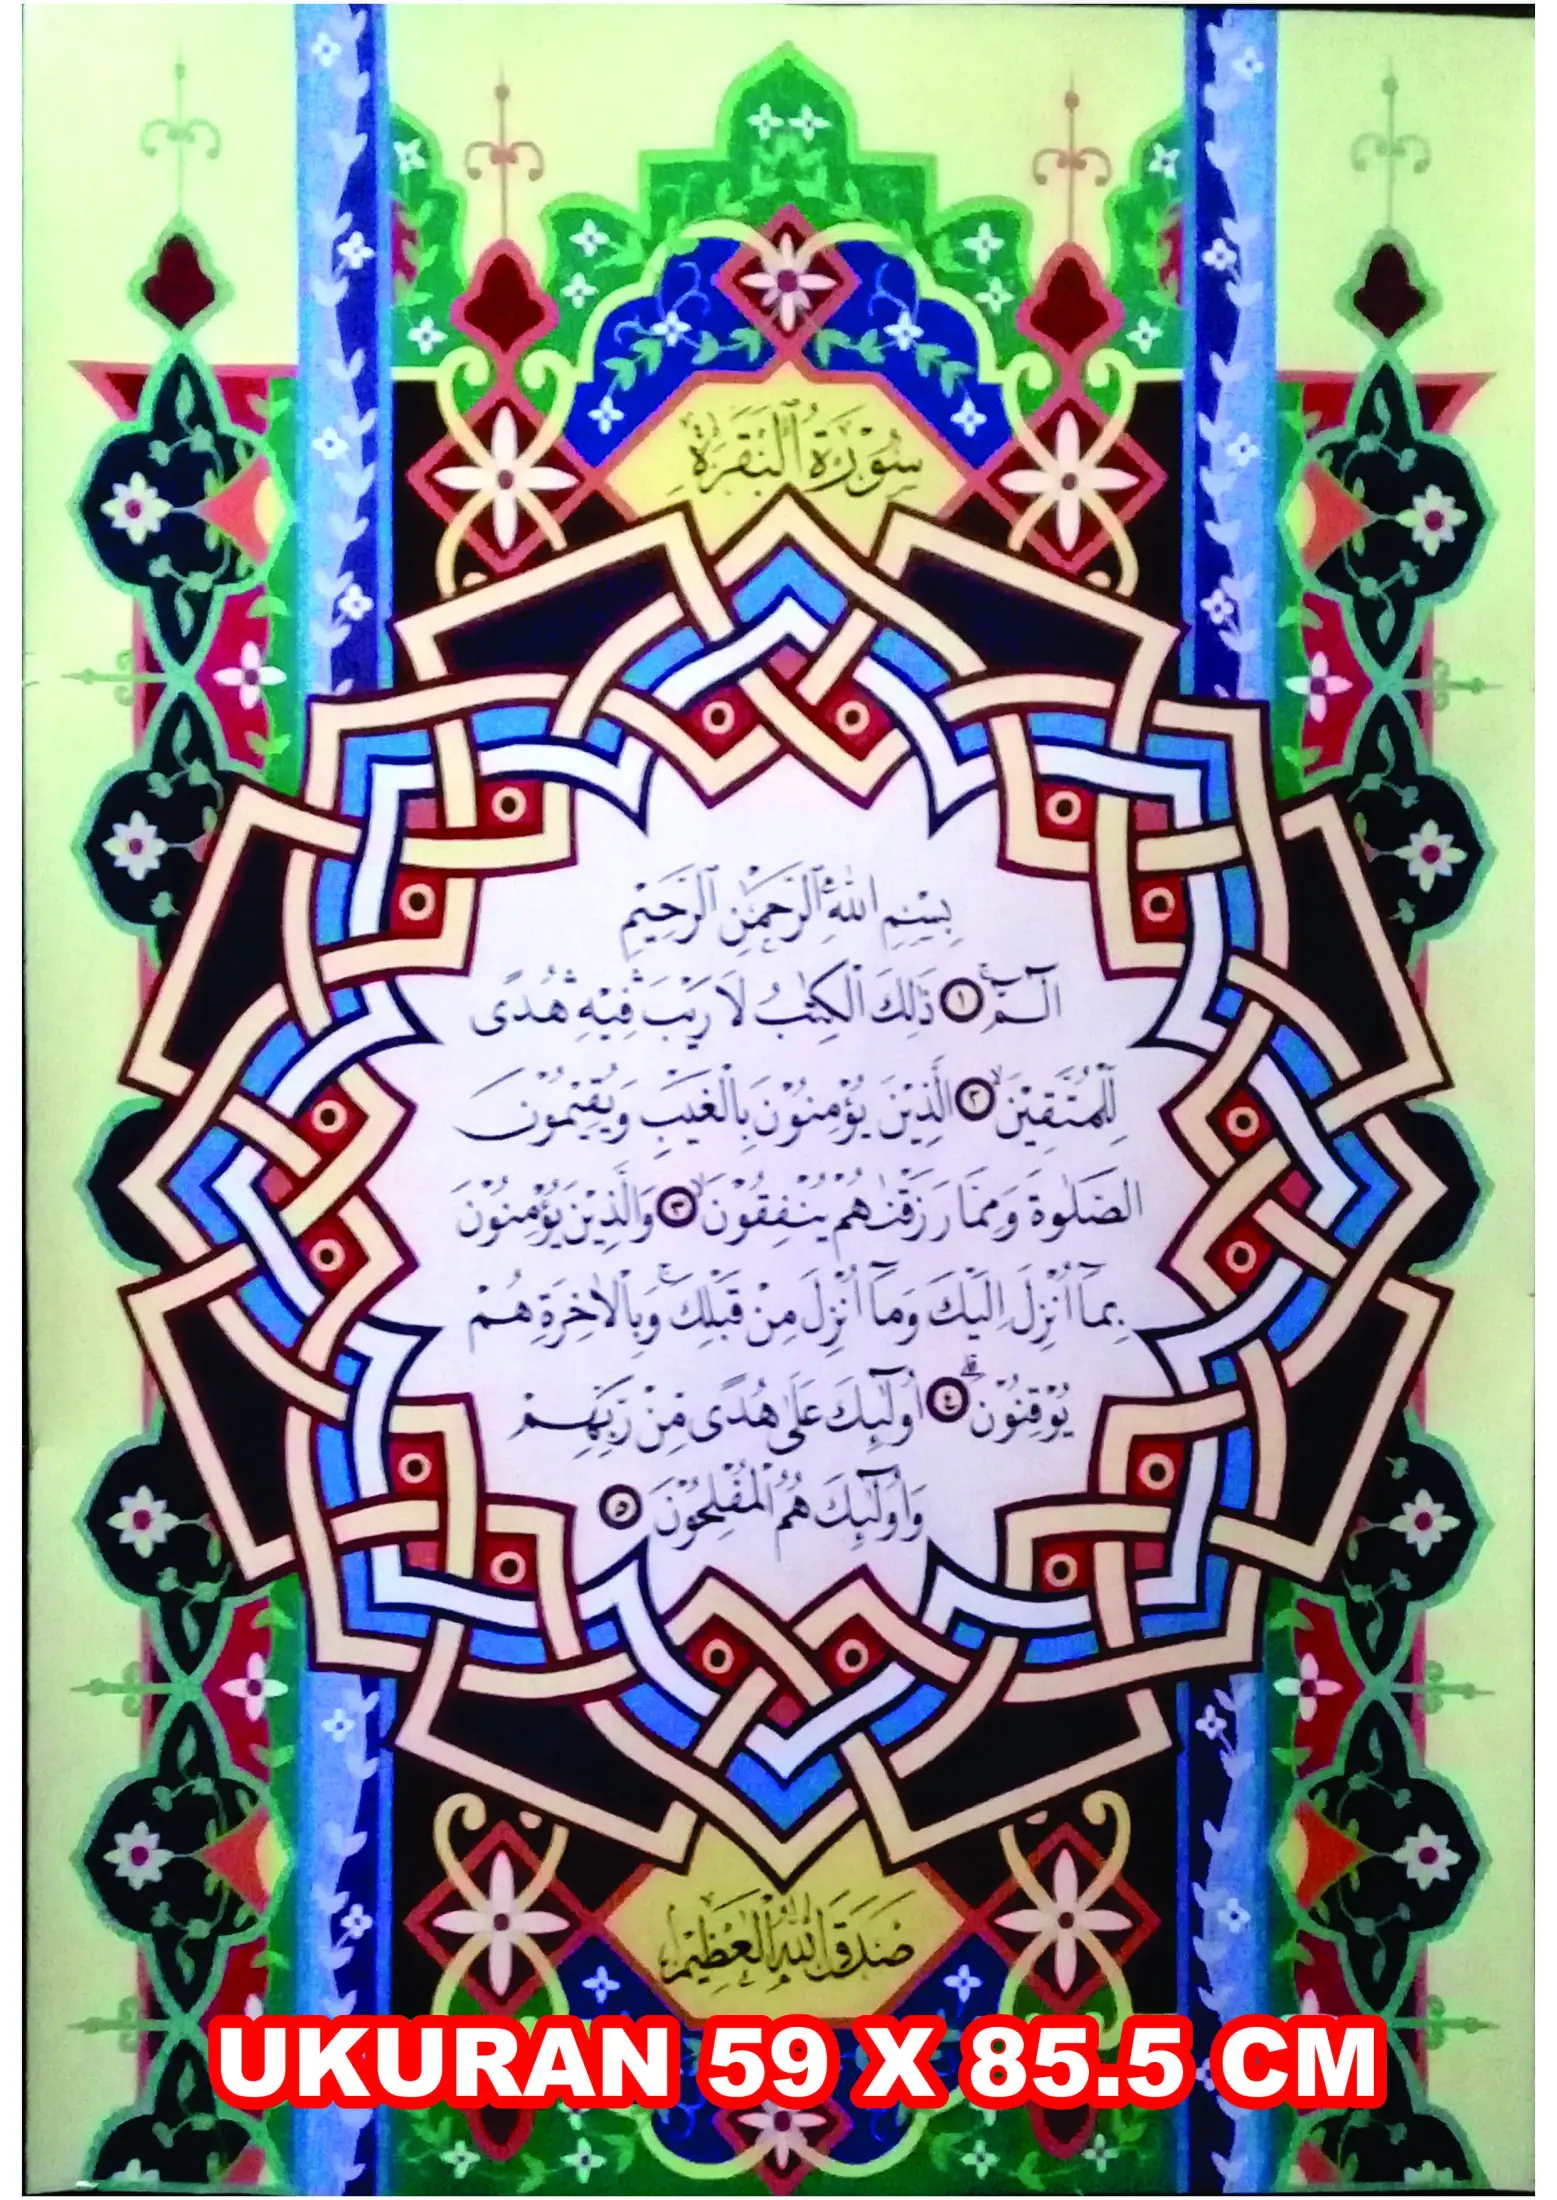 سُوْرَةُ ٱلْبَقَرَةِ
بِسْمِ اللّٰهِ ٱلرَّحْمٰنِ ٱلرَّحِيْمِ
الۤـمّۤ ۚ ١ ذٰلِكَ الْكِتٰبُ لَا رَيْبَ ۛ فِيْهِ ۛ هُدًى
لِّلْمُتَّقِيْنَ ۙ ٢ الَّذِيْنَ يُؤْمِنُوْنَ بِالْغَيْبِ وَيُقِيْمُوْنَ
الصَّلٰوةَ وَمِمَّا رَزَقْنٰهُمْ يُنْفِقُوْنَ ۙ ٣ وَالَّذِيْنَ يُؤْمِنُوْنَ
بِمَآ اُنْزِلَ اِلَيْكَ وَمَآ اُنْزِلَ مِنْ قَبْلِكَ ۚ وَبِالْاٰخِرَةِ هُمْ
يُوْقِنُوْنَ ۗ ٤ اُولٰۤىِٕكَ عَلٰى هُدًى مِّنْ رَّبِّهِمْ
وَاُولٰۤىِٕكَ هُمُ الْمُفْلِحُوْنَ ٥
صَدَقَ اللّٰهُ الْعَظِيْمُ
UKURAN 59 X 85.5 CM